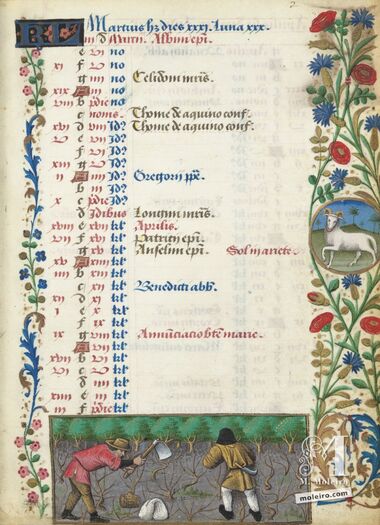 KL Martius hz dies xxxi. Luna xxx.
2
iii d Marcii. Albini epi.
e vi no
xi f v no
g iiii no Celidonii mris.
xix A iii no
viii b pdie no
c nonis. Thome de aquino conf.
xvi d viii Id9 Thome de aquino conf.
v e vii Id9
f vi Id9
xiii g v Id9
ii A iiii Id9 Gregorii pp.
b iii Id9
x c pdie Id9
d Idibus Longini mris.
xviii e xvii kl Aprilis.
vii f xvi kl Patricii epi.
g xv kl Anselmi epi. Sol in ariete.
xv A xiiii kl
iiii b xiii kl
c xii kl Benedicti abb.
xii d xi kl
i e x kl
f ix kl
ix g viii kl Annunciacio bte marie.
A vii kl
xvii b vi kl
vi c v kl
d iiii kl
xiiii e iii kl
iii f pdie kl
M. Moleiro
moleiro.com